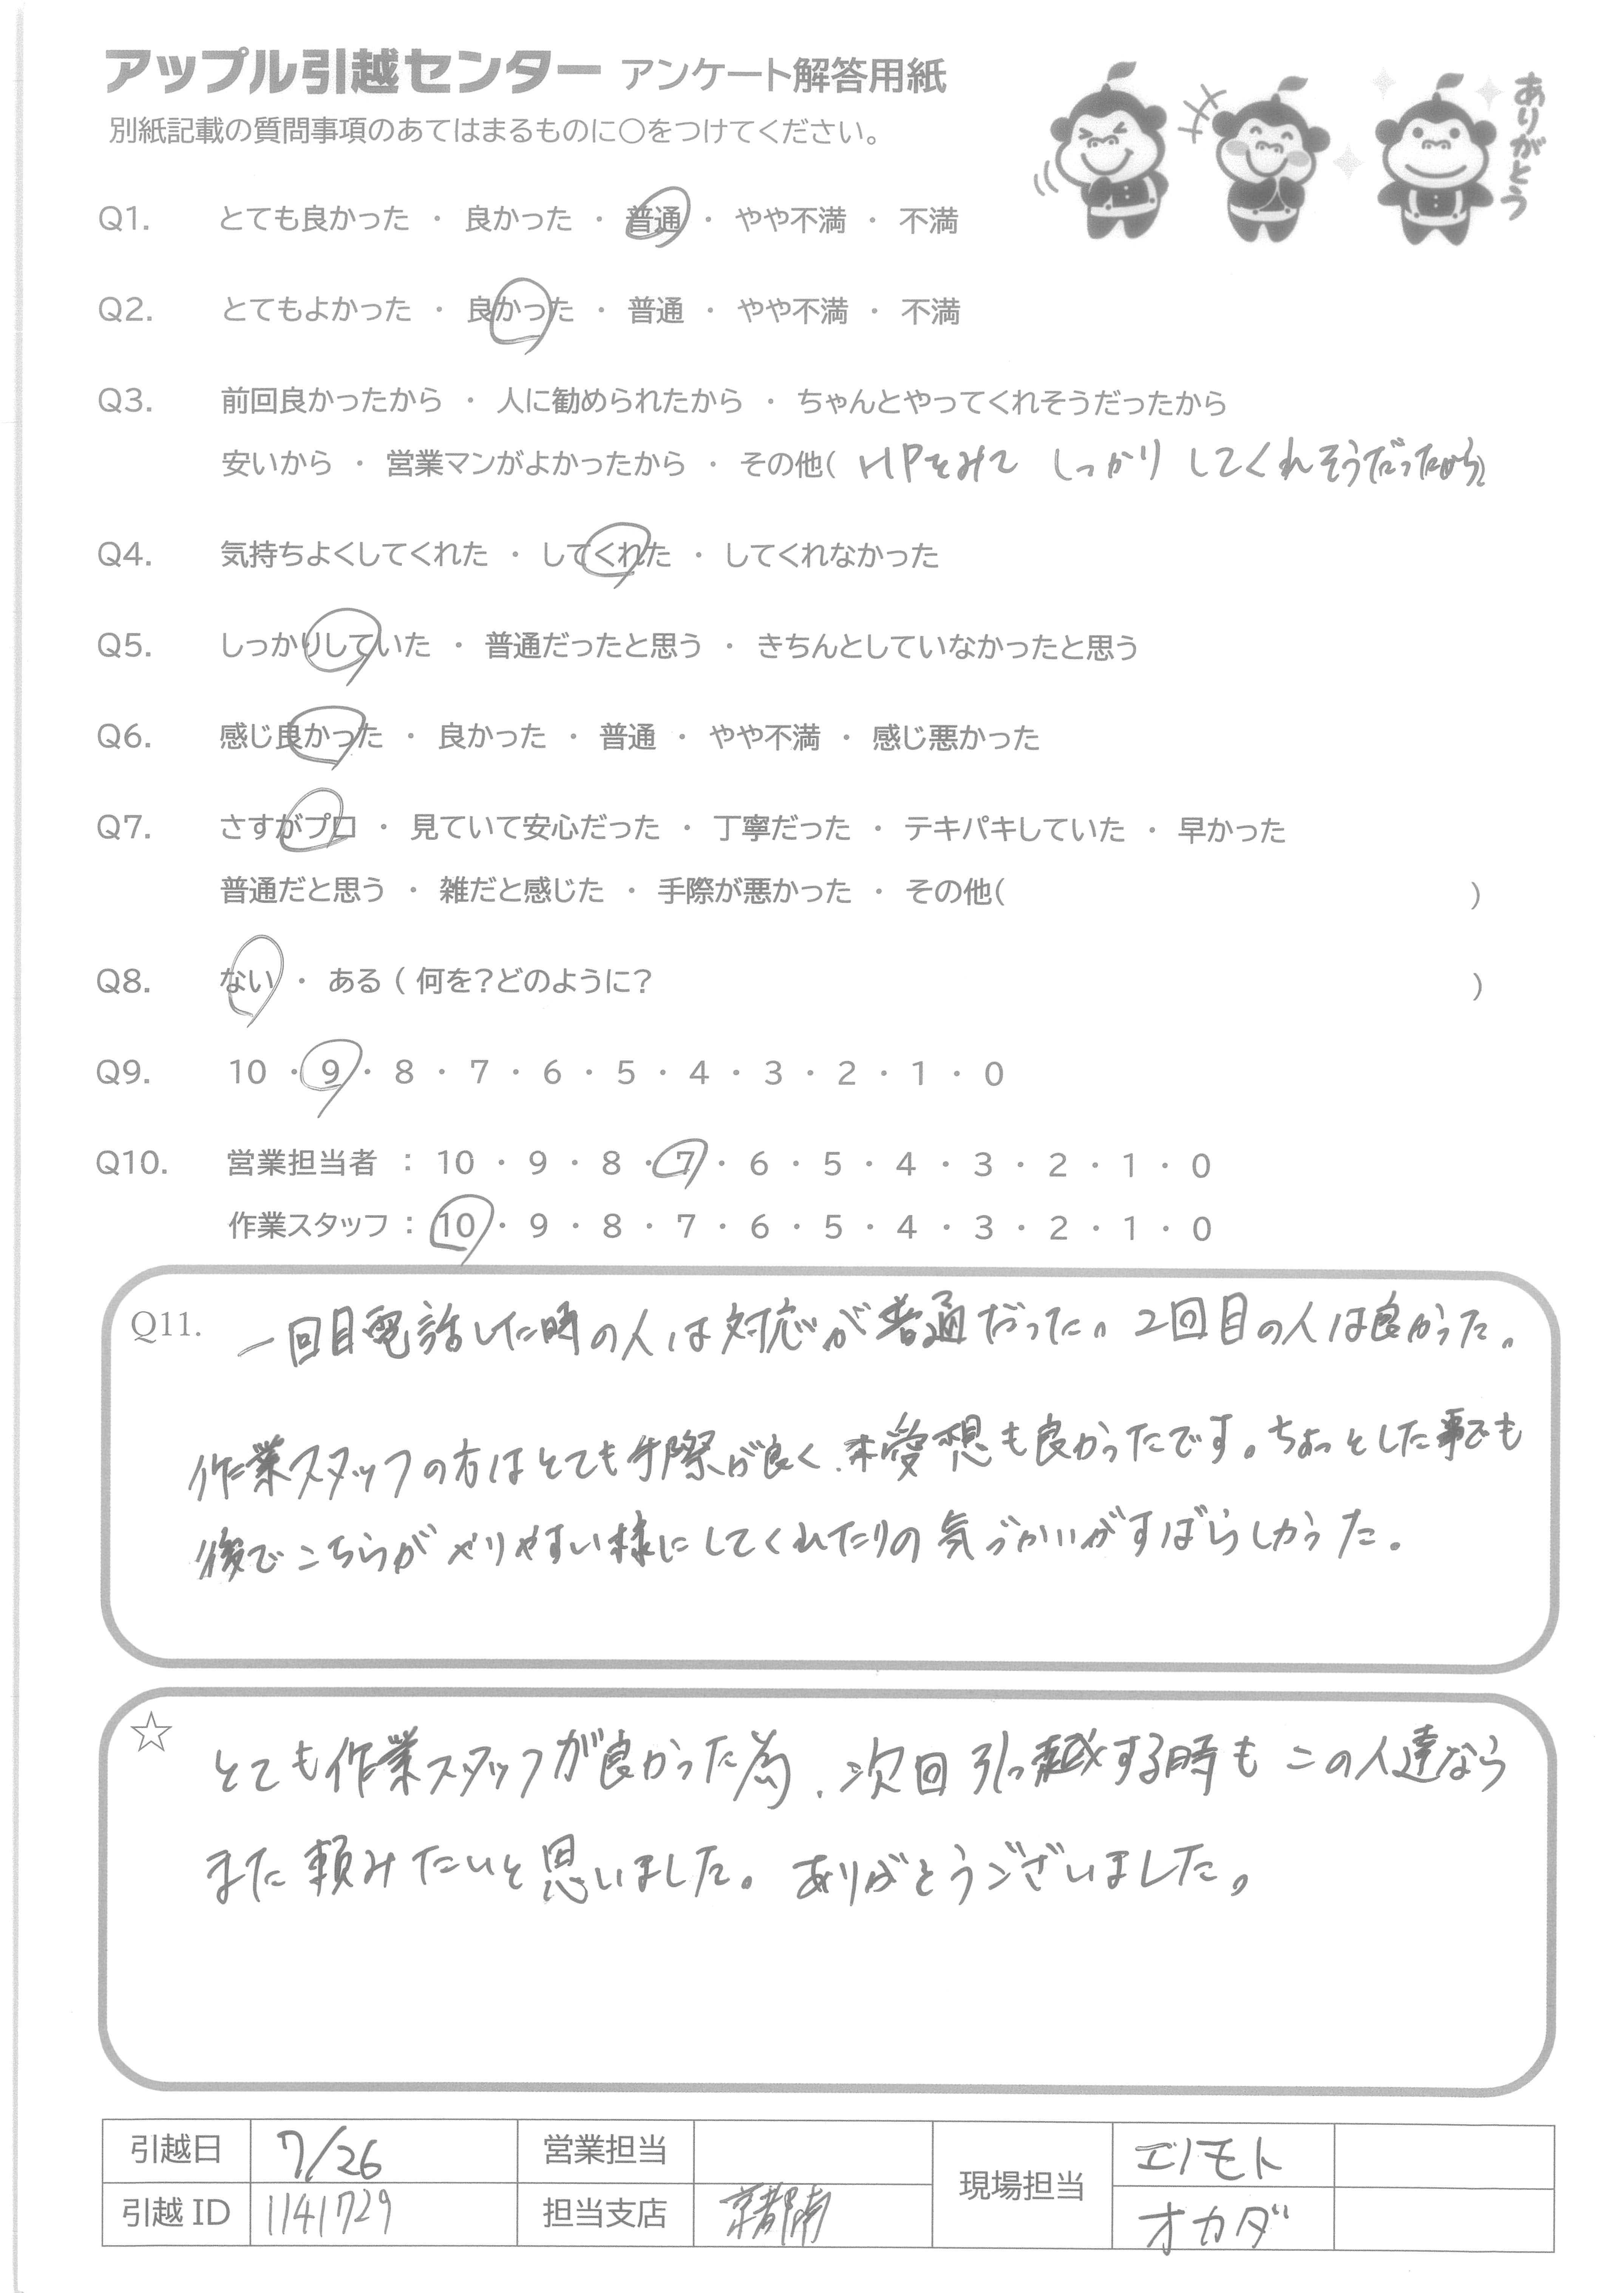 アップル引越センター アンケート解答用紙
別紙記載の質問事項のあてはまるものに○をつけてください。
ありがとう
Q1. とても良かった ・ 良かった ・ 普通 ・ やや不満 ・ 不満
Q2. とてもよかった ・ 良かった ・ 普通 ・ やや不満 ・ 不満
Q3. 前回良かったから ・ 人に勧められたから ・ ちゃんとやってくれそうだったから
安いから ・ 営業マンがよかったから ・ その他( HPをみて しっかり してくれそうだったから)
Q4. 気持ちよくしてくれた ・ してくれた ・ してくれなかった
Q5. しっかりしていた ・ 普通だったと思う ・ きちんとしていなかったと思う
Q6. 感じ良かった ・ 良かった ・ 普通 ・ やや不満 ・ 感じ悪かった
Q7. さすがプロ ・ 見ていて安心だった ・ 丁寧だった ・ テキパキしていた ・ 早かった
普通だと思う ・ 雑だと感じた ・ 手際が悪かった ・ その他( )
Q8. ない ・ ある ( 何を?どのように? )
Q9. 10 ・ 9 ・ 8 ・ 7 ・ 6 ・ 5 ・ 4 ・ 3 ・ 2 ・ 1 ・ 0
Q10. 営業担当者 : 10 ・ 9 ・ 8 ・ 7 ・ 6 ・ 5 ・ 4 ・ 3 ・ 2 ・ 1 ・ 0
作業スタッフ : 10 ・ 9 ・ 8 ・ 7 ・ 6 ・ 5 ・ 4 ・ 3 ・ 2 ・ 1 ・ 0
Q11. 一回目電話した時の人は対応が普通だった。2回目の人は良かった。
作業スタッフの方はとても手際が良く、愛想も良かったです。ちょっとした事でも
後でこちらがやりやすい様にしてくれたりの気づかいがすばらしかった。
☆ とても作業スタッフが良かった為、次回引っ越する時もこの人達なら
また頼みたいと思いました。ありがとうございました。
引越日 7/26 営業担当 現場担当 エノモト
引越ID 1141729 担当支店 京都南 オカダ